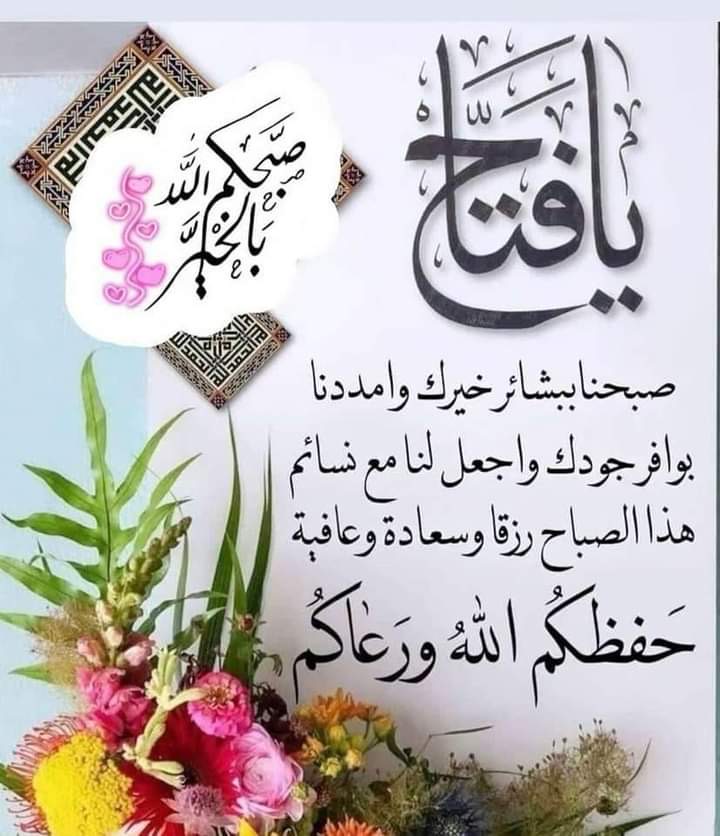 يا فتاح
صبحكم الله
بالخير
صبحنا ببشائر خيرك وامددنا
بوافر جودك واجعل لنا مع نسائم
هذا الصباح رزقا وسعادة وعافية
حَفظكُم اللهُ ورَعاكُم